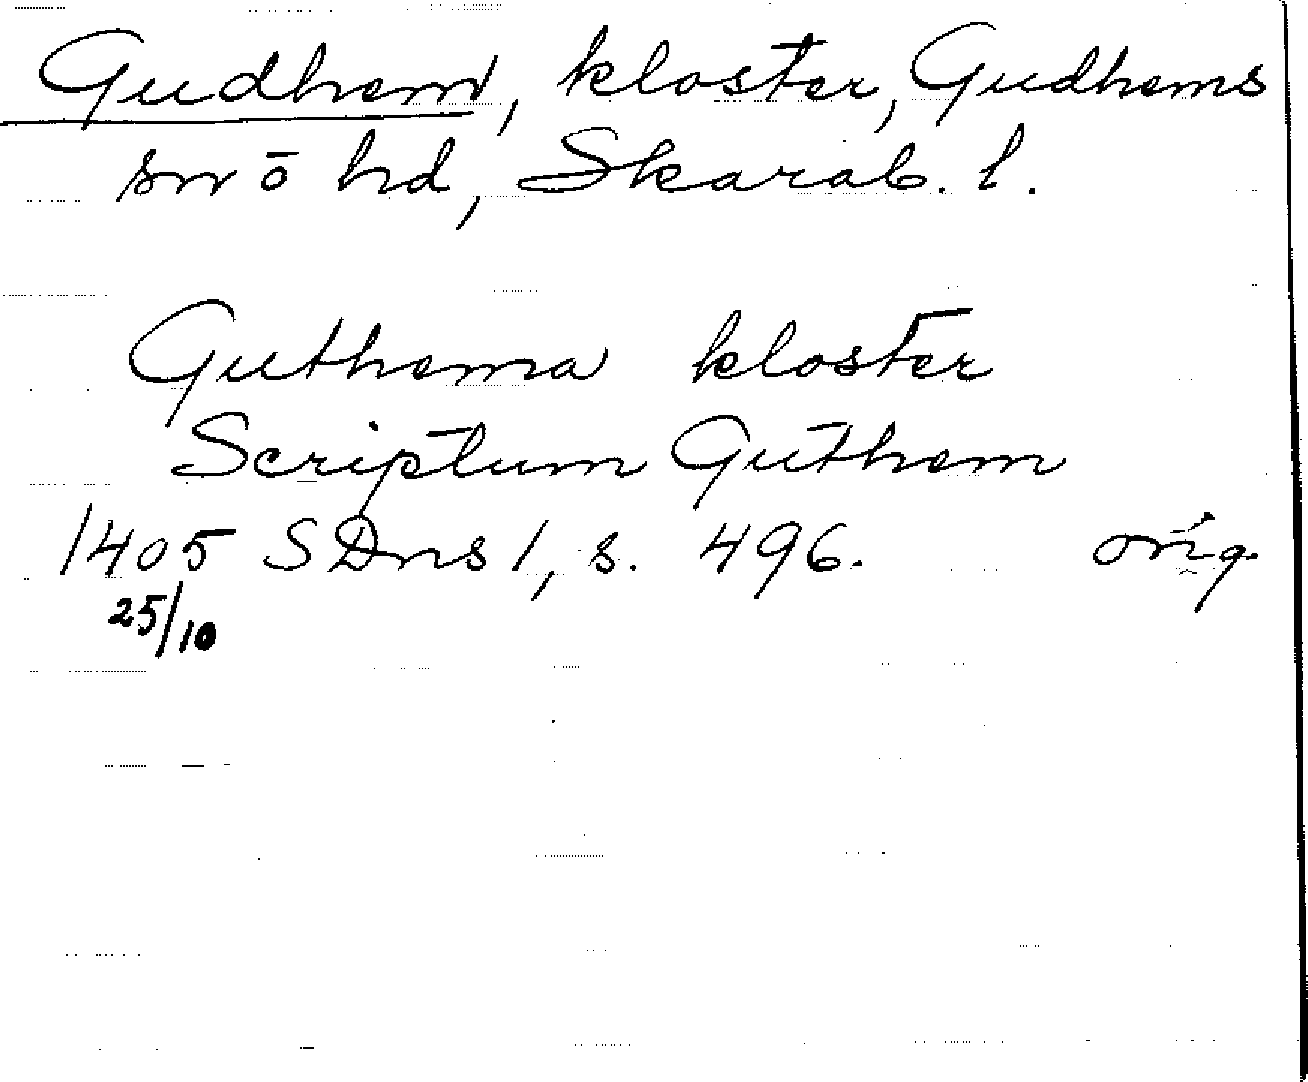 Gudhem, kloster, Gudhems
sn o hd, Skarab. l.
Guthema kloster
Scriptum Guthem
1405 SDns 1, s. 496. orig.
25/10